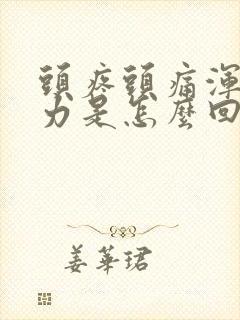 頭疼頭痛渾
力是怎麼回
姜華珺